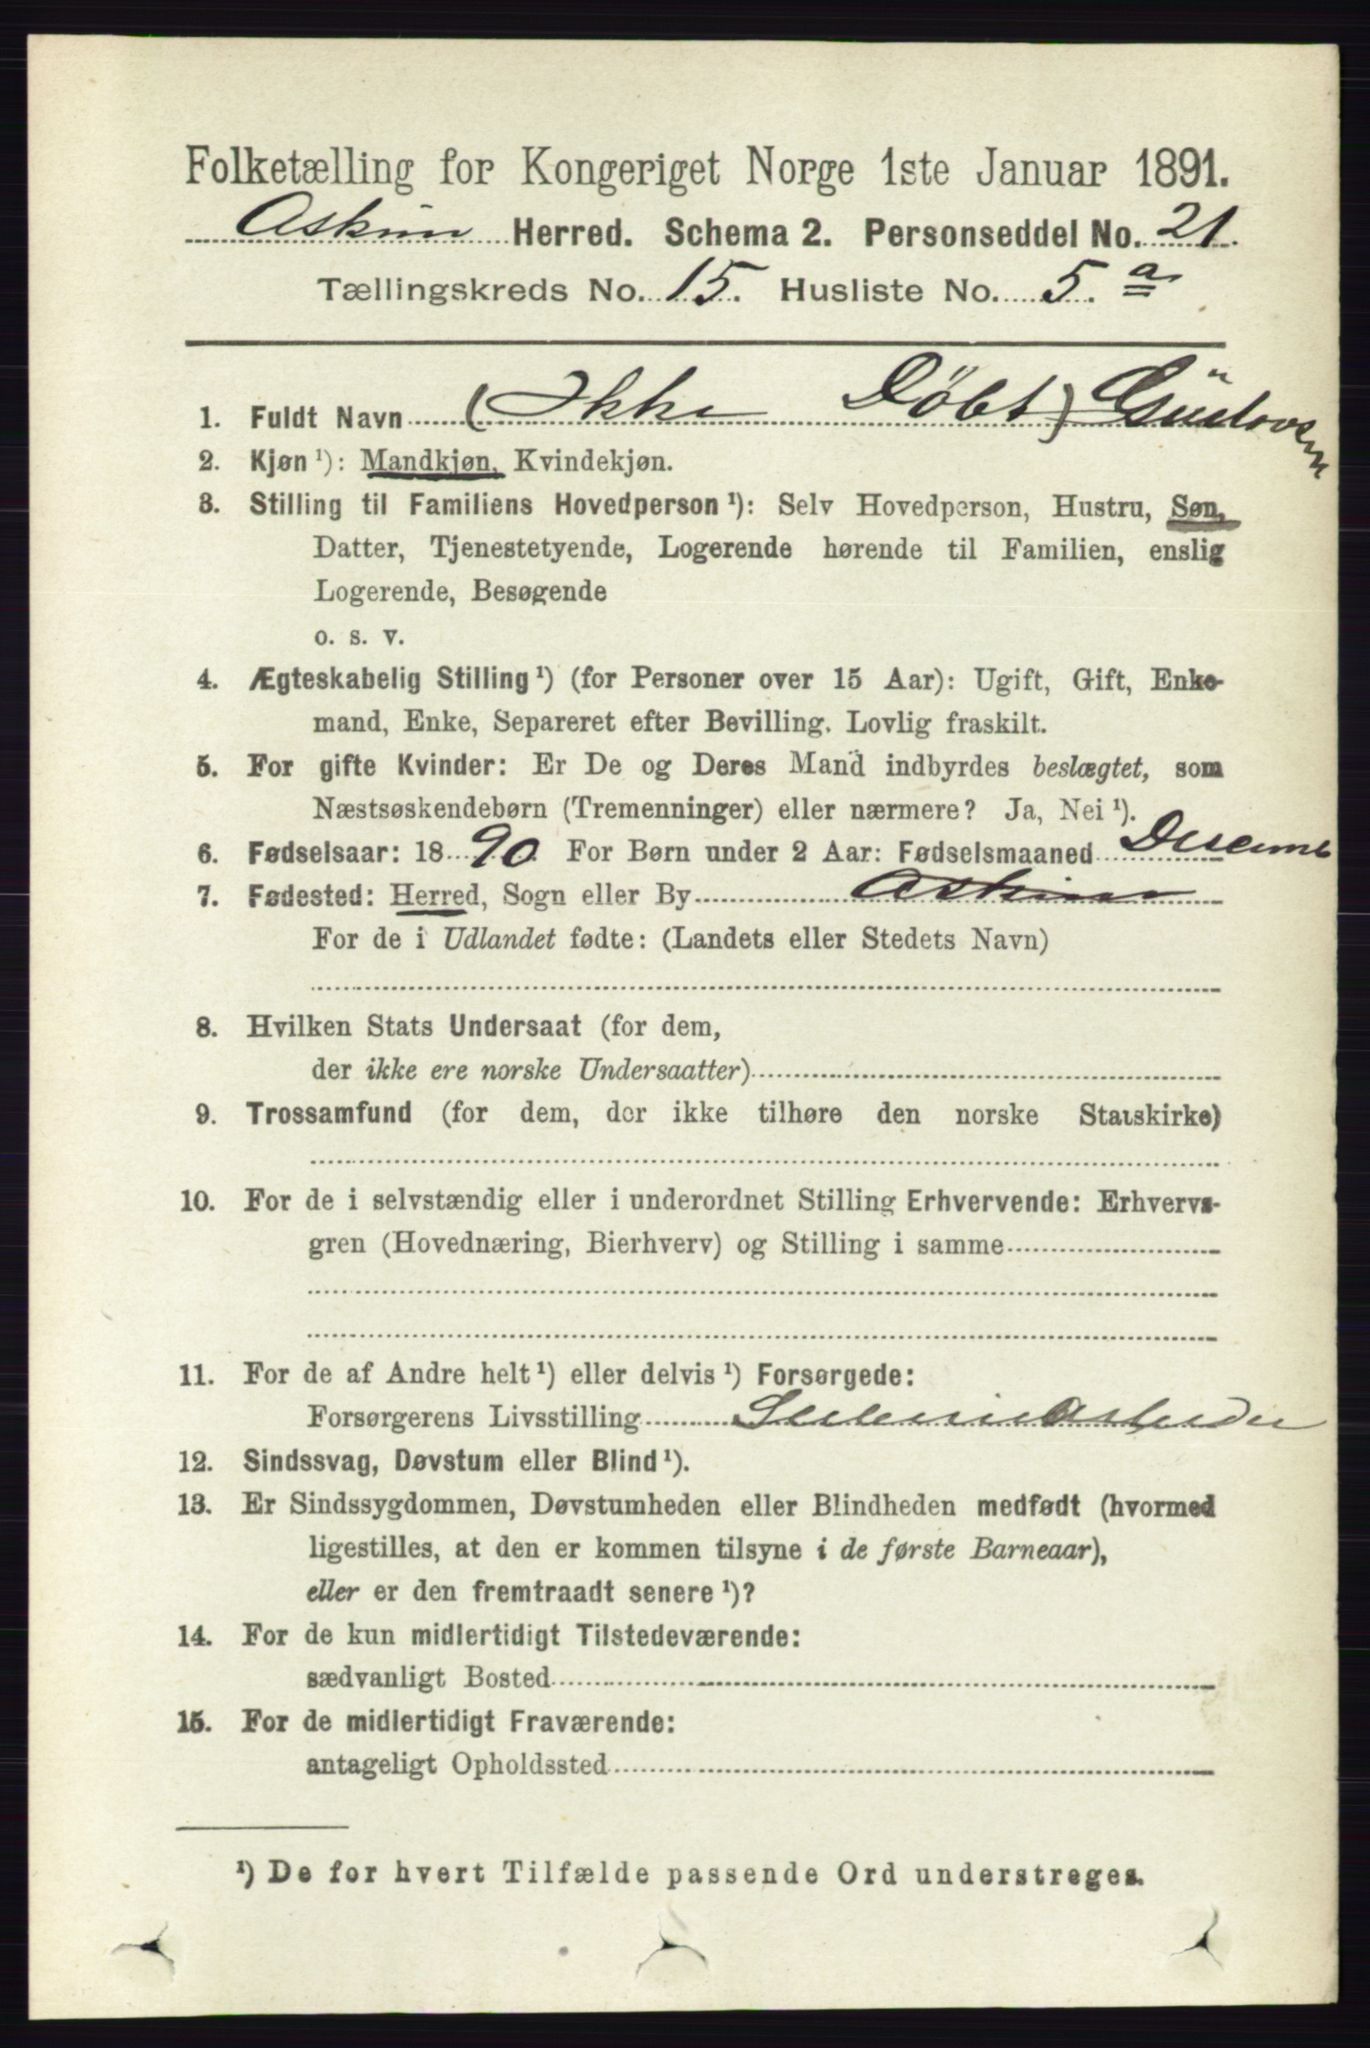 Folketælling for Kongeriget Norge 1ste Januar 1891.
Askim Herred. Schema 2. Personseddel No. 21.
Tællingskreds No. 15. Husliste No. 5. a
1. Fuldt Navn (Ikke Døbt)
2. Kjøn ¹): Mandkjøn, Kvindekjøn.
3. Stilling til Familiens Hovedperson ¹): Selv Hovedperson, Hustru, Søn,
Datter, Tjenestetyende, Logerende hørende til Familien, enslig
Logerende, Besøgende
o. s. v.
4. Ægteskabelig Stilling ¹) (for Personer over 15 Aar): Ugift, Gift, Enke-
mand, Enke, Separeret efter Bevilling. Lovlig fraskilt.
5. For gifte Kvinder: Er De og Deres Mand indbyrdes beslægtet, som
Næstsøskendebørn (Tremenninger) eller nærmere? Ja, Nei ¹).
6. Fødselsaar: 1890 For Børn under 2 Aar: Fødselsmaaned Desemb
7. Fødested: Herred, Sogn eller By Askim
For de i Udlandet fødte: (Landets eller Stedets Navn)
8. Hvilken Stats Undersaat (for dem,
der ikke ere norske Undersaatter)
9. Trossamfund (for dem, der ikke tilhøre den norske Statskirke)
10. For de i selvstændig eller i underordnet Stilling Erhvervende: Erhvervs-
gren (Hovednæring, Bierhverv) og Stilling i samme
11. For de af Andre helt ¹) eller delvis ¹) Forsørgede:
Forsørgerens Livsstilling
12. Sindssvag, Døvstum eller Blind ¹).
13. Er Sindssygdommen, Døvstumheden eller Blindheden medfødt (hvormed
ligestilles, at den er kommen tilsyne i de første Barneaar),
eller er den fremtraadt senere ¹)?
14. For de kun midlertidigt Tilstedeværende:
sædvanligt Bosted
15. For de midlertidigt Fraværende:
antageligt Opholdssted
¹) De for hvert Tilfælde passende Ord understreges.